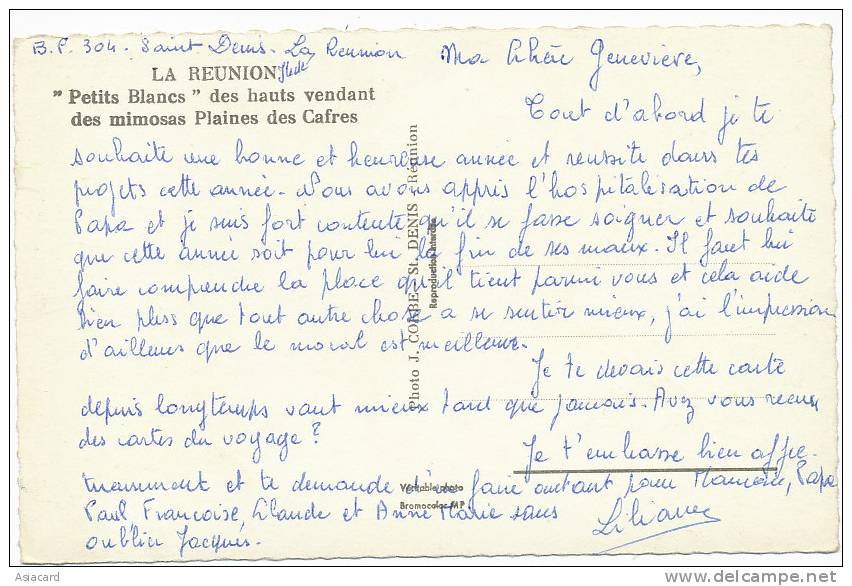 B.P. 304. Saint Denis. La Réunion
LA REUNION
" Petits Blancs " des hauts vendant
des mimosas Plaines des Cafres
Ma Chère Geneviève,
Tout d'abord je te
souhaite une bonne et heureuse année et reussite dans tes
projets cette année. Nous avons appris l'hospitalisation de
Papa et je suis fort contente qu'il se fasse soigner et souhaite
que cette année soit pour lui la fin de ses maux. Il faut lui
faire comprendre la place qu'il tient parmi vous et cela aide
bien plus que tout autre chose a se sentir mieux, j'ai l'impression
d'ailleurs que le moral est meilleur.
Je te devais cette carte
depuis longtemps vaut mieux tard que jamais. Avez vous recu
des cartes du voyage?
Je t'embrasse bien affec
tueusement et te demande d'en faire autant pour Maman, Papa
Paul Francoise, Claude et Anne Marie sans
oublier Jacques.
Liliane
Photo J. CORBEL St. DENIS Réunion
Reproduction interdite
Véritable photo
Bromocolor MP
Asiacard
http://www.delcampe.net